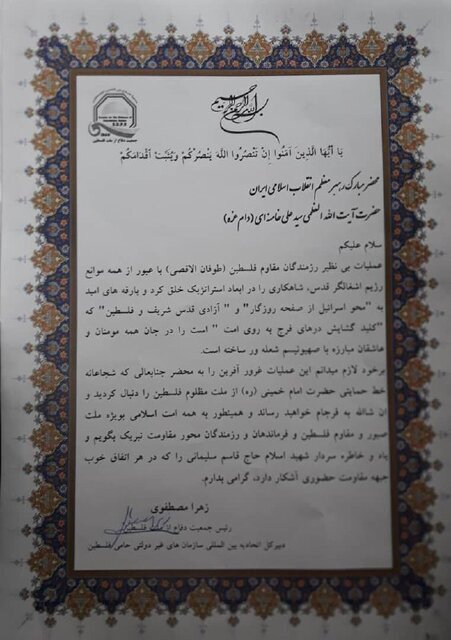 Society for the Defence of
Palestinian Nation
S.D.P.N
جمعیت دفاع از ملت فلسطین
بسم الله الرحمن الرحیم
یَا أَیُّهَا الَّذِینَ آمَنُوا إِنْ تَنْصُرُوا اللَّهَ یَنْصُرْکُمْ وَیُثَبِّتْ أَقْدَامَکُمْ
محضر مبارک رهبر معظم انقلاب اسلامی ایران
حضرت آیت الله العظمی سید علی خامنه ای (دام عزه)
سلام علیکم
عملیات بی نظیر رزمندگان مقاوم فلسطین (طوفان الاقصی) با عبور از همه موانع
رژیم اشغالگر قدس، شاهکاری را در ابعاد استراتژیک خلق کرد و بارقه های امید
به "محو اسرائیل از صفحه روزگار" و " آزادی قدس شریف و فلسطین" که
"کلید گشایش درهای فرج به روی امت " است را در جان همه مومنان و
عاشقان مبارزه با صهیونیسم شعله ور ساخته است.
برخود لازم میدانم این عملیات غرور آفرین را به محضر جنابعالی که شجاعانه
خط حمایتی حضرت امام خمینی (ره) از ملت مظلوم فلسطین را دنبال کردید و
ان شالله به فرجام خواهید رساند و همینطور به همه امت اسلامی بویژه ملت
صبور و مقاوم فلسطین و فرماندهان و رزمندگان محور مقاومت تبریک بگویم و
یاد و خاطره سردار شهید اسلام حاج قاسم سلیمانی را که در هر اتفاق خوب
جبهه مقاومت حضوری آشکار دارد، گرامی بدارم.
زهرا مصطفوی
رئیس جمعیت دفاع از ملت فلسطین
دبیرکل اتحادیه بین المللی سازمان های غیر دولتی حامی فلسطین